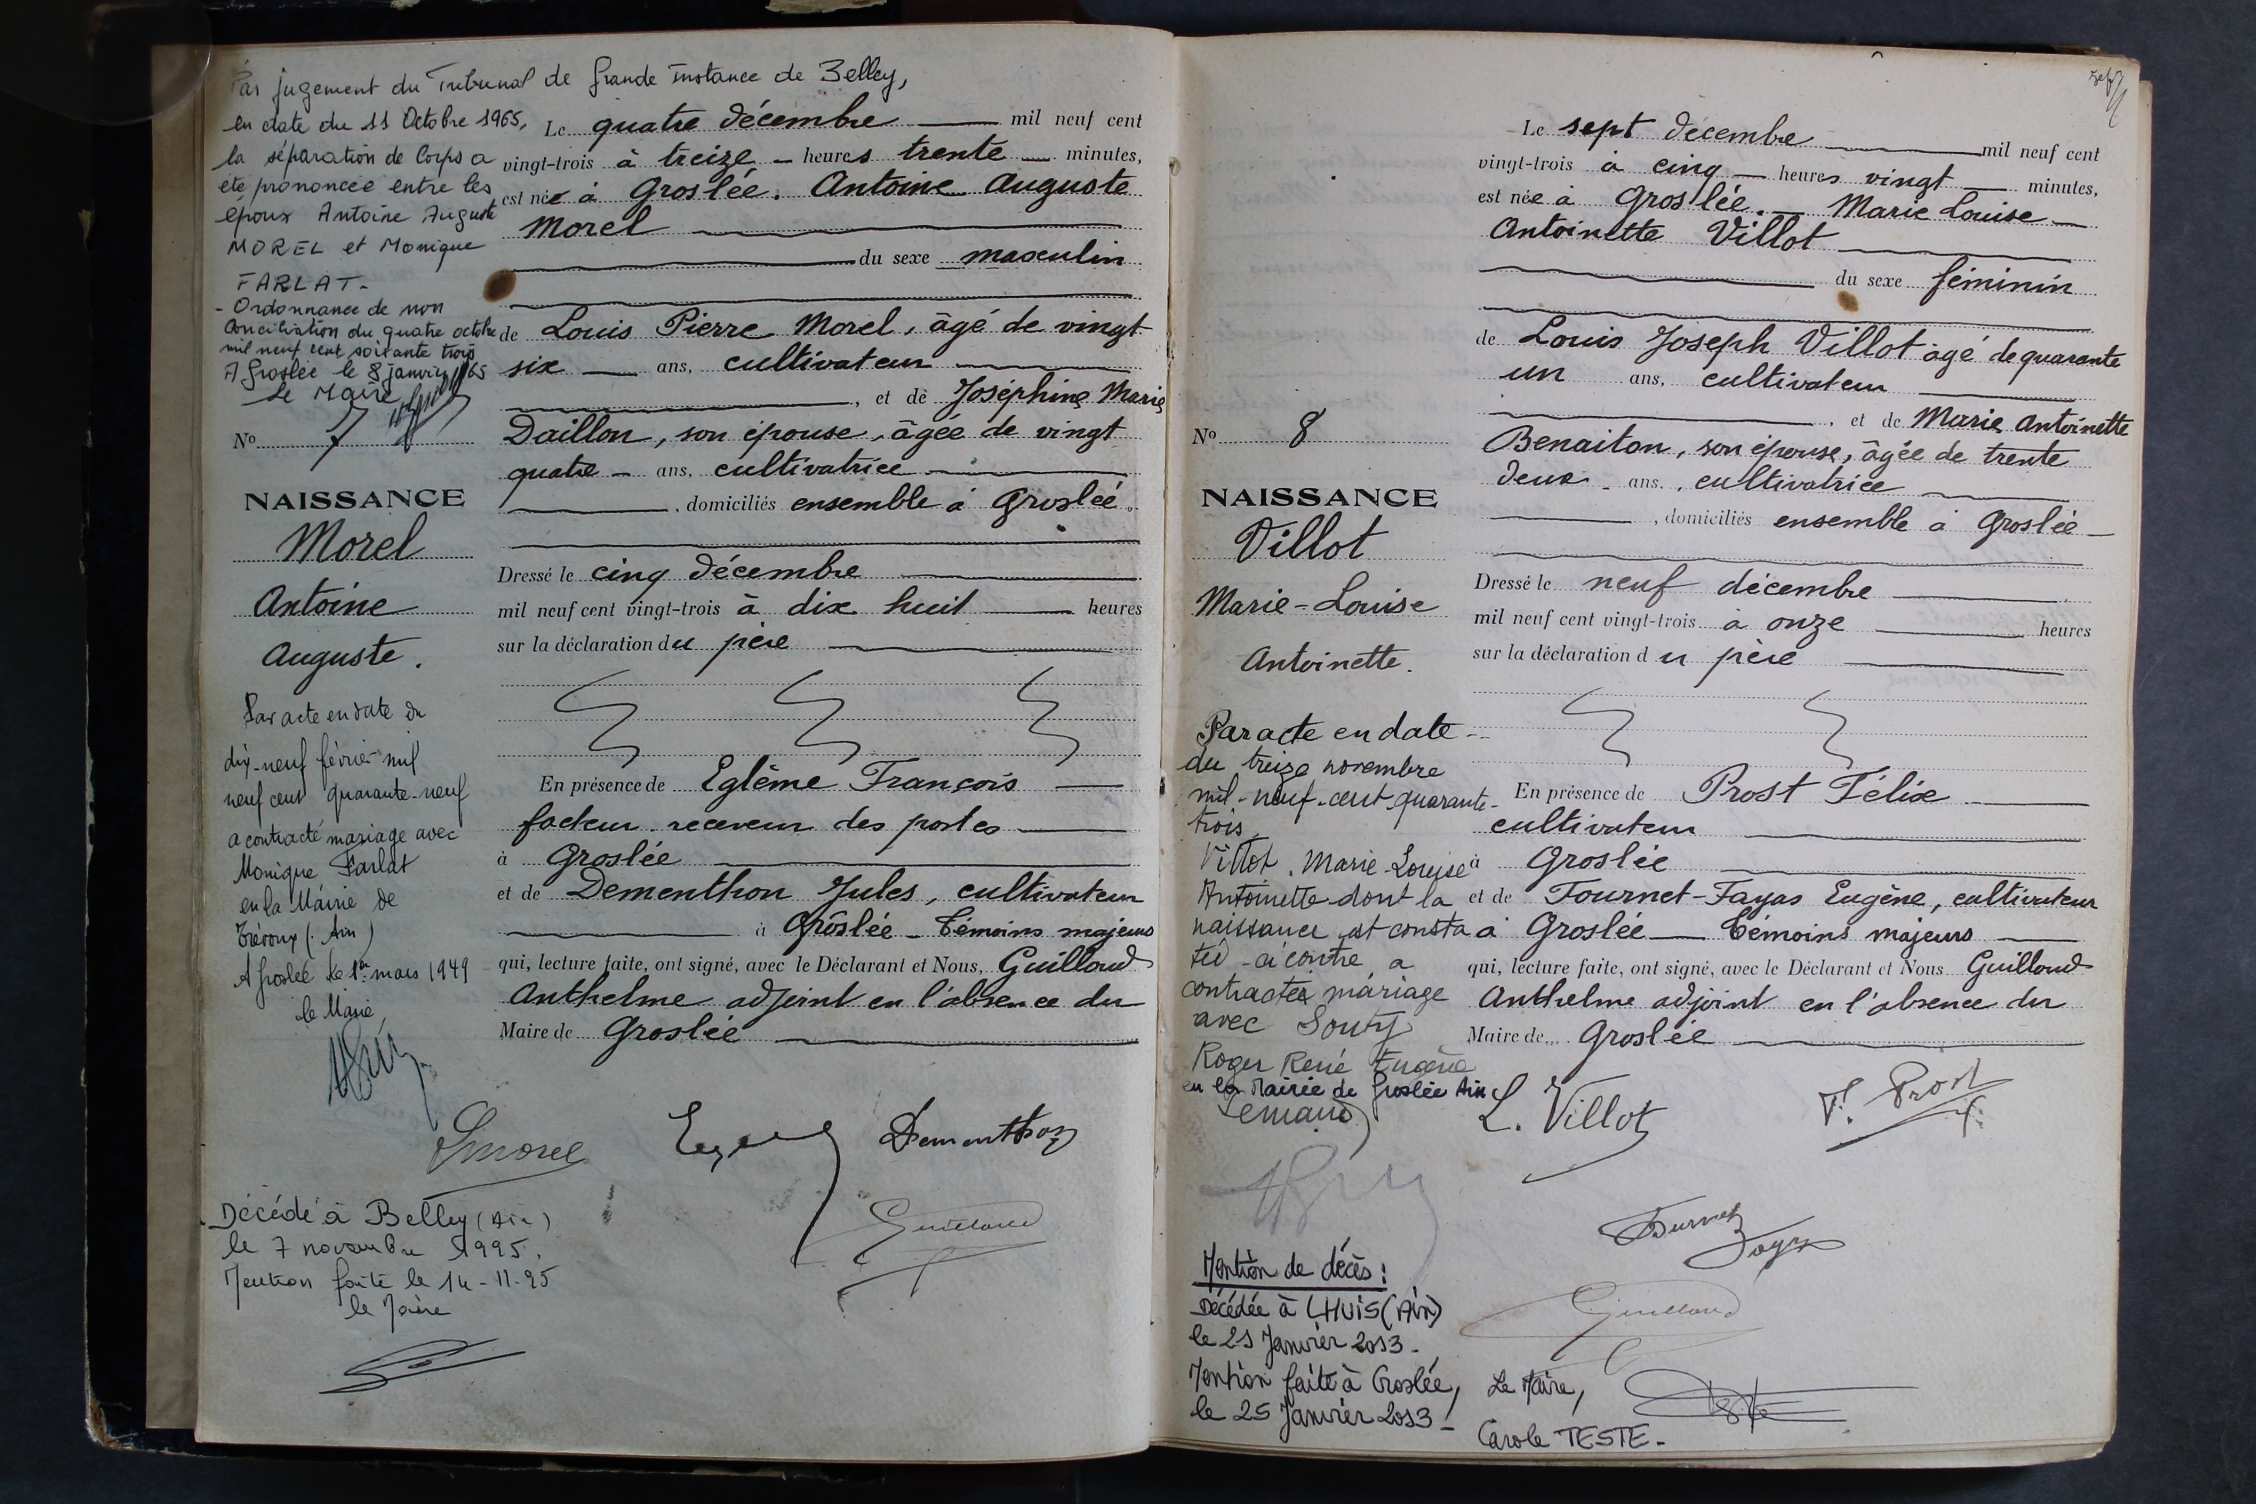 Par jugement du Tribunal de Grande Instance de Belley,
en date du 11 Octobre 1965,
la séparation de Corps a
été prononcée entre les
époux Antoine Auguste
MOREL et Monique
FARLAT -
- Ordonnance de non
Conciliation du quatre octobre
mil neuf cent soixante trois
A Groslée le 8 janvier 1965
Le Maire
No 7
NAISSANCE
Morel
Antoine
Auguste.
Par acte en date du
dix-neuf février mil
neuf cent quarante-neuf
a contracté mariage avec
Monique Farlat
en la Mairie de
Trévoux (Ain)
A Groslée le 1er mars 1949
le Maire,
Le quatre décembre mil neuf cent
vingt-trois à treize heures trente minutes,
est née à Groslée. Antoine Auguste
Morel
du sexe masculin
de Louis Pierre Morel, âgé de vingt
six ans, cultivateur
, et de Joséphine Marie
Daillon, son épouse, âgée de vingt
quatre ans, cultivatrice
, domiciliés ensemble à Groslée.
Dressé le cinq décembre
mil neuf cent vingt-trois à dix huit heures
sur la déclaration du père
En présence de Eglème François
facteur receveur des postes
à Groslée
et de Dementhon Jules, cultivateur
à Groslée - Témoins majeurs
qui, lecture faite, ont signé, avec le Déclarant et Nous, Guilloud
Anthelme adjoint en l'absence du
Maire de Groslée
LMorel
Dementhon
Guilloud
Décédé à Belley (Ain)
le 7 novembre 1995.
Mention faite le 14-11-95
le Maire
No 8
NAISSANCE
Villot
Marie-Louise
Antoinette.
Par acte en date
du treize novembre
mil-neuf-cent-quarante-
trois,
Villot. Marie-Louise
Antoinette dont la
naissance est consta
tée ci contre a
contracté mariage
avec Souty
Roger René Eugène
en la Mairie de Groslée Ain
Le sept décembre mil neuf cent
vingt-trois à cinq heures vingt minutes,
est née à Groslée. Marie Louise
Antoinette Villot
du sexe féminin
de Louis Joseph Villot âgé de quarante
un ans, cultivateur
, et de Marie Antoinette
Benaiton, son épouse, âgée de trente
deux ans, cultivatrice
, domiciliés ensemble à Groslée
Dressé le neuf décembre
mil neuf cent vingt-trois à onze heures
sur la déclaration du père
En présence de Prost Félix
cultivateur
à Groslée
et de Fournet-Fayas Eugène, cultivateur
à Groslée Témoins majeurs
qui, lecture faite, ont signé, avec le Déclarant et Nous Guilloud
Anthelme adjoint en l'absence du
Maire de Groslée
L. Villot
F. Prost
Fournet
Fayas
Guilloud
Mention de décès :
Décédée à LHUIS (AIN)
le 21 Janvier 2013 -
Mention faite à Groslée,
le 25 Janvier 2013 -
Le Maire,
Carole TESTE -